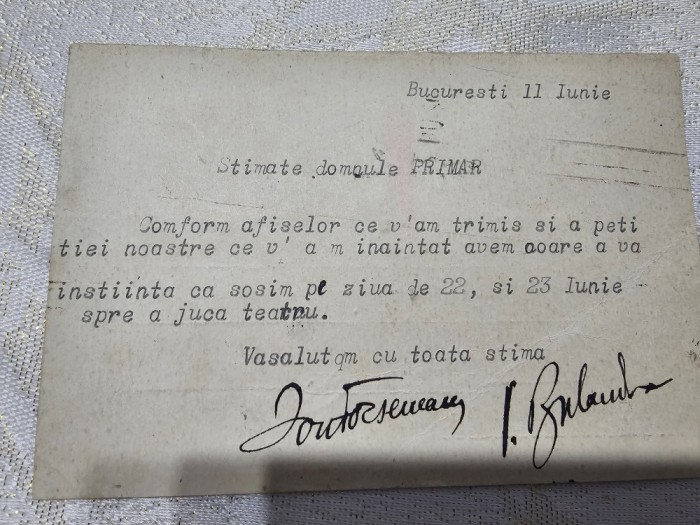 Bucuresti 11 Iunie
Stimate domnule PRIMAR
Comform afiselor ce v'am trimis si a peti
tiei noastre ce v' a m inaintat avem aoare a va
instiinta ca sosim pe ziua de 22, si 23 Iunie
spre a juca teatru.
Vasalutqm cu toata stima